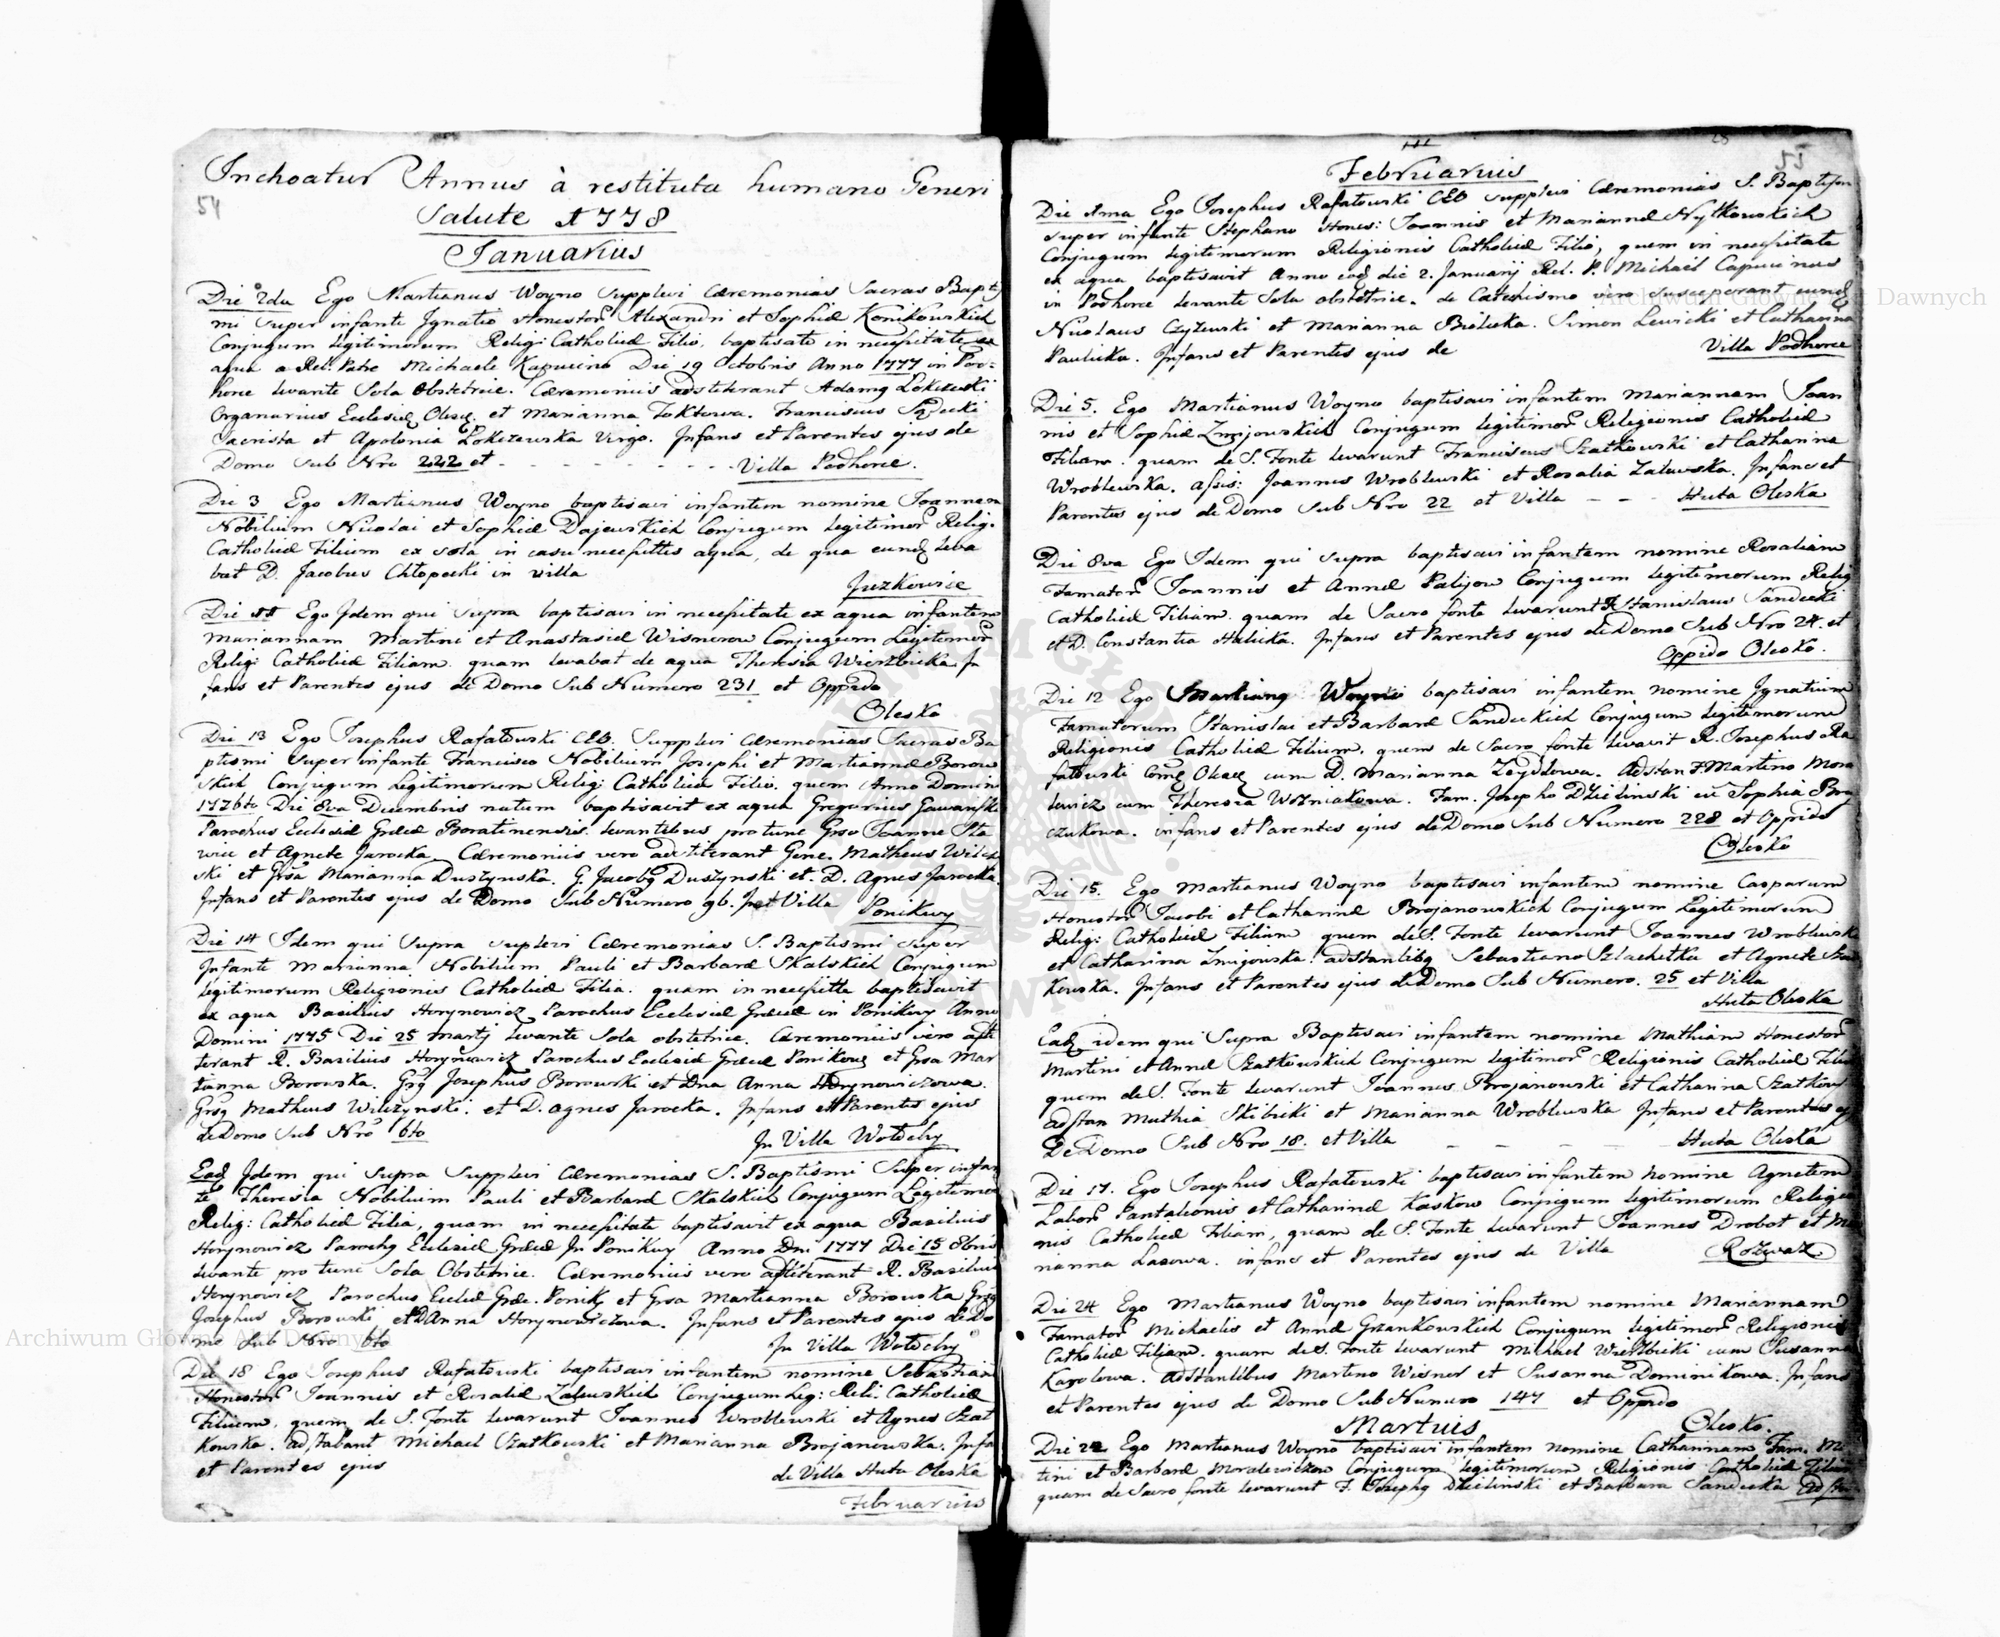 Inchoatur Annus à restituta humano Generi
54
Salute 1778
Januarius
Die 2da Ego Martianus Woyno Supplevi Cæremonias Sacras Bapti
mi super infante Ignatio Honestor Alexandri et Sophiæ Konikowskich
Conjugum legitimorum Relig: Catholicæ Filio, baptisato in necessitate ex
aqua a Rel. Patre Michaele Kapucino Die 19 Octobris Anno 1777 in Pod-
horce levante Sola Obstetrice. Cæremoniis adstiterant Adamg Lokczewski
Organarius Ecclesiæ Olesc. et Marianna Toktowa. Franciscus Sędecki
Sacrista et Apolonia Lokczewska Virgo. Infans et Parentes ejus de
Domo Sub Nro 222 et - - - - - - - - Villa Podhorce.
Die 3 Ego Martianus Woyno baptisavi infantem nomine Joannem
Nobilium Nicolai et Sophiæ Dajewskich Conjugum legitimor Relig.
Catholicæ Filium ex sola in casu necessittis aqua, de qua eund leva
bat D. Jacobus Chłopecki in villa
Juzkowice
Die 11 Ego Idem qui Supra baptisavi in necessitate ex aqua infantem
Mariannam Martini et Anastasiæ Wisnerow Conjugum Legitimor
Relig: Catholicæ Filiam. quam levabat de aqua Theresia Wierzbicka In
fans et Parentes ejus de Domo Sub Numero 231 et Oppido
Olesko
Die 13 Ego Josephus Rafałowski CEO. Supplevi Cæremonias Sacras Ba
ptismi Super infante Francisco Nobilium Josephi et Mariannæ Borow
skich Conjugum Legitimorum Relig: Catholicæ Filio. quem Anno Domini
1776to Die 8va Decembris natum baptisavit ex aqua Gregorius
Parochus Ecclesiæ Græcæ Boratinensis. levantibus pro tunc Grso Joanne Sta
wice et Agnete Jarocka. Cæremoniis vero adstiterant Gene. Matheus Wilcz
ski et Grsa Marianna Duszynska. G. Jacobg Duszynski et. D. Agnes Jarocka
Infans et Parentes ejus de Domo Sub Numero 96. et Villa Ponikwy
Die 14 Idem qui Supra Suplevi Cæremonias S. Baptismi super
Infante Marianna Nobilium Pauli et Barbaræ Skalskich Conjugum
legitimorum Religionis Catholicæ Filia. quam in necessitte baptisavit
ex aqua Basilius Horynowicz Parochus Ecclesiæ Græcæ in Ponikwy Anno
Domini 1775 Die 25 Martij levante Sola obstetrice. Cæremoniis vero asti
terant R. Basilius Horynowicz Parochus Ecclesiæ Græcæ Ponikow et Grsa Mar
ianna Borowska. Grsg Josephus Borowski et Dna Anna Horynowiczowa.
Grsg Matheus Wilczynski. et D. Agnes Jarocka. Infans et Parentes ejus
de Domo Sub Nro 6to In Villa Wołochy
Ead Idem qui Supra Supplevi Cæremonias S. Baptismi Super infan
te Theresia Nobilium Pauli et Barbaræ Skalskich Conjugum Legitimor
Relig: Catholicæ Filia, quam in necessitate baptisavit ex aqua Basilius
Horynowicz Parochg Ecclesiæ Græcæ In Ponikwy Anno Dni 1777 Die 15 8bris
levante pro tunc Sola Obstetrice. Cæremoniis vero adstiterant R. Basilius
Horynowicz Parochus Eccliæ Græc. Ponik et Grsa Martianna Borowska Grsg
Josephus Borowski et DAnna Horynowiczowa. Infans et Parentes ejus de Do
mo Sub Nro 6to In Villa Wołochy
Die 18 Ego Josephus Rafałowski baptisavi infantem nomine Sebastian
Honestor Joannis et Rosaliæ Zalewskich Conjugum Leg: Reli. Catholicæ
Filium, quem de S. Fonte levarunt Joannes Wroblewski et Agnes Szat
kowska. adstabant Michael Szatkowski et Marianna Brojanowska. Infa
et Parentes ejus de Villa Huta Oleska
Februarius
55
Februarius
Die 1ma Ego Josephus Rafałowski CEO supplevi Cæremonias S. Baptism
super infante Stephano Hones: Joannis et Mariannæ Nytkowskich
Conjugum legitimorum Religionis Catholicæ Filio, quem in necessitate
ex aqua baptisavit Anno eod die 2. Januarij Rel. P. Michael Capucinus
in Podhorce levante Sola obstetrice. de Catechismo vero susceperant eund
Nicolaus Czyzewski et Marianna Bielecka. Simon Lewicki et Catharina
Paulicka. Infans et Parentes ejus de Villa Podhorce
Die 5. Ego Martianus Woyno baptisavi infantem Mariannam Joan
nis et Sophiæ Zmijowskich Conjugum legitimor Religionis Catholicæ
Filiam. quam de S. Fonte levarunt Franciscus Szatkowski et Catharina
Wroblewska. Assis: Joannes Wroblewski et Rosalia Zalewska. Infans et
Parentes ejus de Domo Sub Nro 22 et Villa - - - Huta Oleska
Die 8va Ego Idem qui supra baptisavi infantem nomine Rosaliam
Famator Joannis et Annæ Palijow Conjugum legitimorum Relig
Catholicæ Filiam. quam de Sacro fonte levarunt Stanislaus Sandecki
et D. Constantia Halicka. Infans et Parentes ejus de Domo Sub Nro 24. et
Oppido Olesko.
Die 12 Ego Martiang Woyno baptisavi infantem nomine Ignatium
Famatorum Stanislai et Barbaræ Sandeckich Conjugum legitimorum
Religionis Catholicæ Filium, quem de Sacro fonte levavit R. Josephus Ra
fałowski Com Olesc cum D. Marianna Zeydlowa. Adstan F. Martino Mora
lewicz cum Theresia Wozniakowa. Fam. Josepho Dzielinski cū Sophia Bra
czukowa. infans et Parentes ejus de Domo Sub Numero 228 et Oppido
Olesko
Die 15. Ego Martianus Woyno baptisavi infantem nomine Casparum
Honestor Jacobi et Catharinæ Brojanowskich Conjugum Legitimorum
Relig: Catholicæ Filium quem de S. Fonte levarunt Joannes Wroblewsk
et Catharina Zmijowska. adstantibg Sebastiano Szlachetka et Agnete Sza
kowska. Infans et Parentes ejus de Domo Sub Numero. 25 et Villa
Huta Oleska
Ead idem qui Supra Baptisavi infantem nomine Mathiam Honestor
Martini et Annæ Szatkowskich Conjugum legitimor Religionis Catholicæ Filiu
quem de S. Fonte levarunt Joannes Brojanowski et Catharina Szatkow
adstan Mathia Skibicki et Marianna Wroblewska Infans et Parentes ej
De Domo Sub Nro 18. et Villa - - - - Huta Oleska
Die 17. Ego Josephus Rafałowski baptisavi infantem nomine Agnetem
Labor Pantalionis et Catharinæ Kaskow Conjugum legitimorum Religio
nis Catholicæ Filiam, quam de S. Fonte levarunt Joannes Drobot et Ma
rianna Lasowa. infans et Parentes ejus de Villa Rożwaz
Die 24 Ego Martianus Woyno baptisavi infantem nomine Mariannam
Famator Michaelis et Annæ Grzankowskich Conjugum legitimor Religionis
Catholicæ Filiam. quam de S. Fonte levarunt Michael Wierzbicki cum Susanna
Karolowa. Adstantibus Martino Wisner et Susanna Dominikowa. Infans
et Parentes ejus de Domo Sub Numero 147 et Oppido
Olesko.
Martius
Die 22 Ego Martianus Woyno baptisavi infantem nomine Catharinam Fam. Mar
tini et Barbaræ Moralewiczow Conjugum legitimorum Religionis Catholicæ Filiam
quam de Sacro fonte levarunt F. Josephg Dzielinski et Barbara Sandecka Adstan
Archiwum Główne Akt Dawnych
Archiwum Główne Akt Dawnych